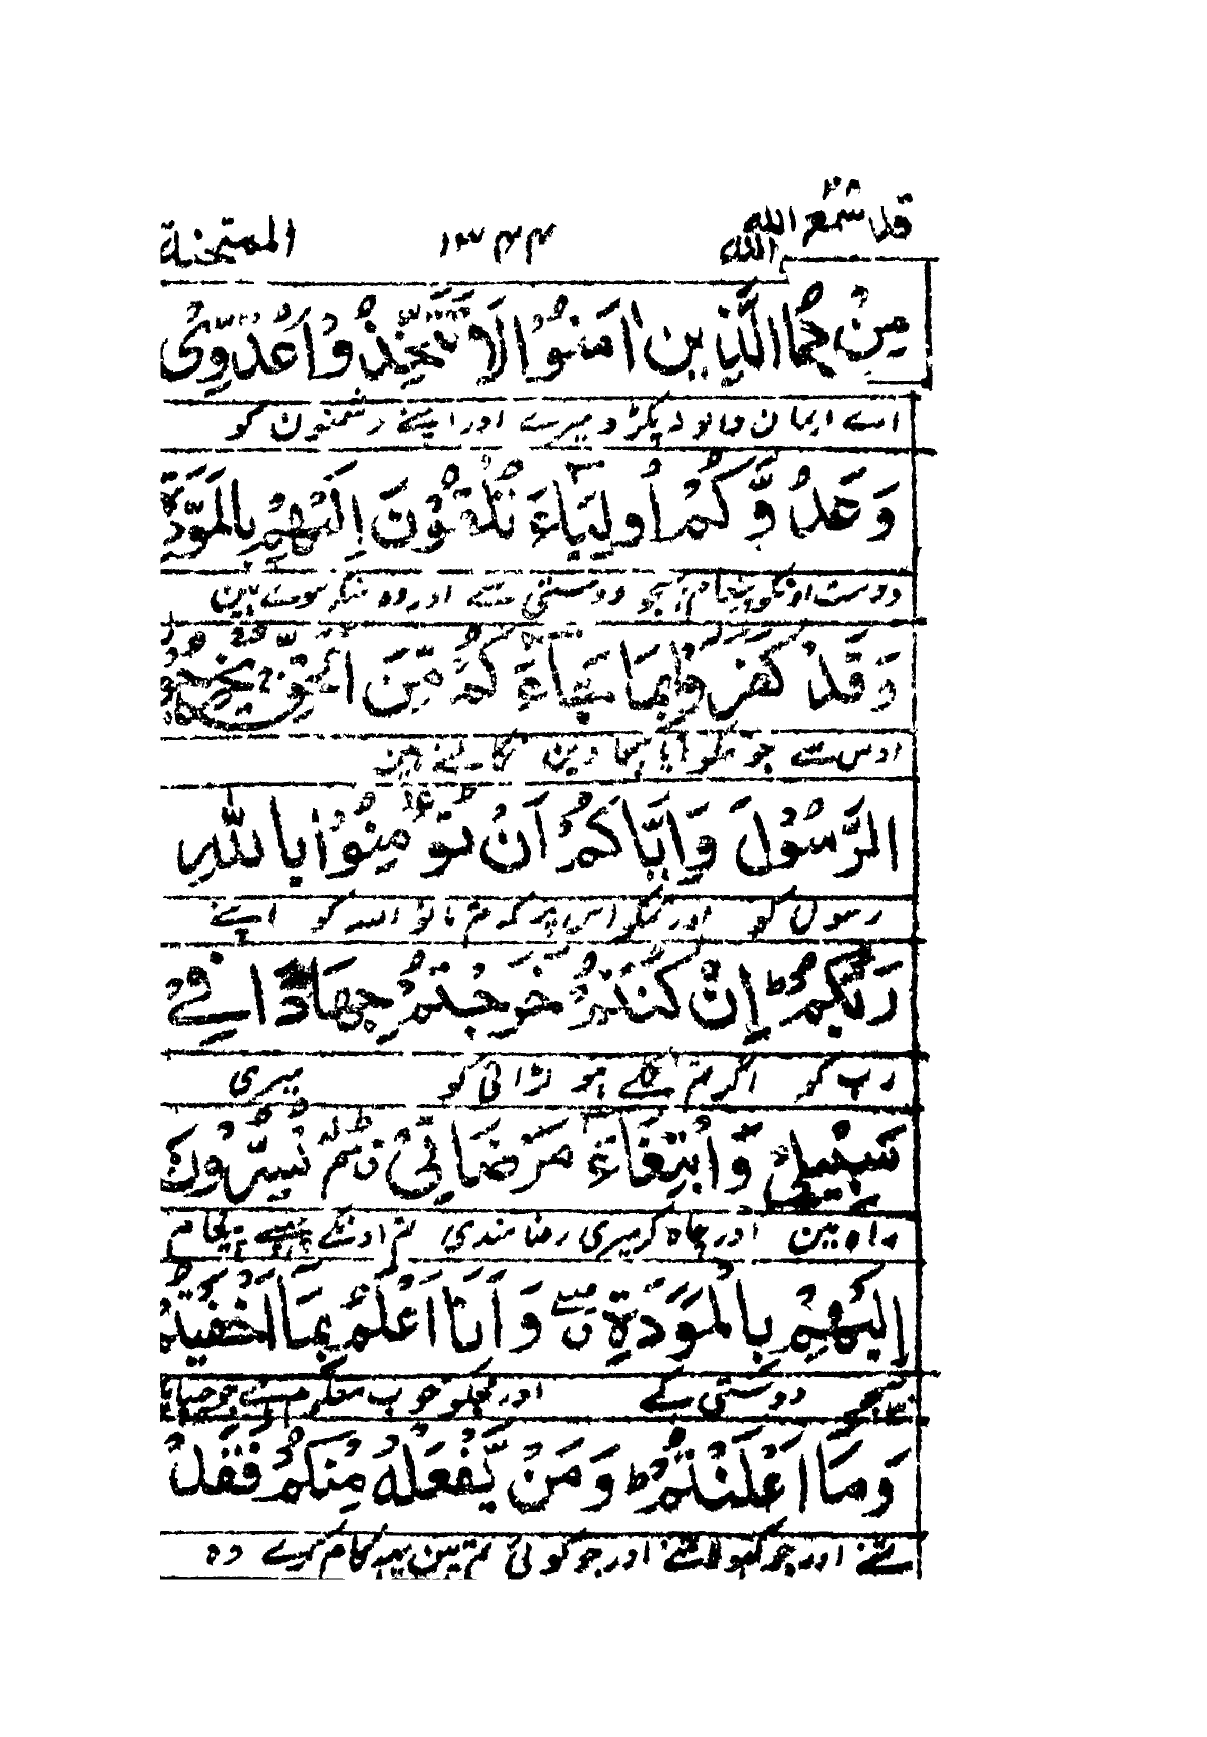 قد سمع الله ٢٨ ١٣٤٤ الممتحنة
الله
الَّذِينَ اٰمَنُوْا لَا تَتَّخِذُوْا عَدُوِّىْ
اے ایمان والو نہ پکڑو میرے اور اپنے دشمنون کو
وَعَدُوَّكُمْ اَوْلِيَآءَ تُلْقُوْنَ اِلَيْهِمْ بِالْمَوَدَّةِ
دوست اونکو پیغام بھیجو دوستی سے اور وہ منکر ہوے ہین
وَقَدْ كَفَرُوْا بِمَا جَآءَكُمْ مِّنَ الْحَقِّ يُخْرِجُوْنَ
اوس سے جو تمکو آیا سچا دین نکالتے ہین
الرَّسُوْلَ وَاِيَّاكُمْ اَنْ تُؤْمِنُوْا بِاللّٰهِ
رسول کو اور تمکو اس پر کہ تم مانو اللہ کو اپنے
رَبِّكُمْ ط اِنْ كُنْتُمْ خَرَجْتُمْ جِهَادًا فِيْ
رب کو اگر تم نکلے ہو لڑائی کو میری
سَبِيْلِيْ وَابْتِغَآءَ مَرْضَاتِيْ تُسِرُّوْنَ
راہ مین اور چاہ کر میری رضامندی تم اونکے چھپے پیغام
اِلَيْهِمْ بِالْمَوَدَّةِ وَاَنَا اَعْلَمُ بِمَا اَخْفَيْتُمْ
بھیجو دوستی کے اور مجکو خوب معلوم ہے جو چھپایا
وَمَا اَعْلَنْتُمْ ط وَمَنْ يَّفْعَلْهُ مِنْكُمْ فَقَدْ
تمنے اور جو کھولا تمنے اور جو کوئی تم مین یہہ کام کرے وہ